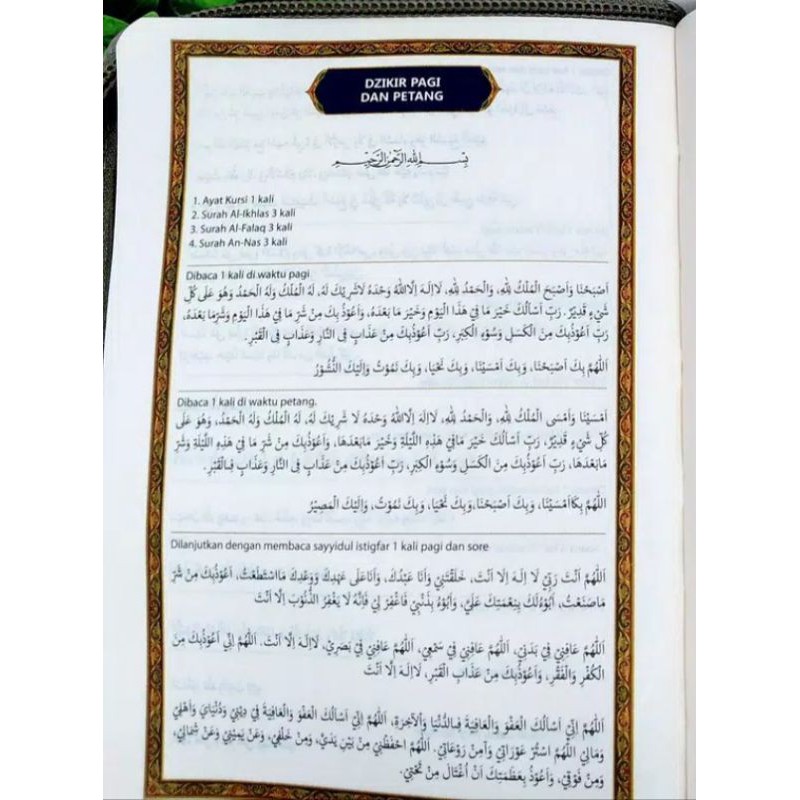 DZIKIR PAGI
DAN PETANG
بِسْمِ اللهِ الرَّحْمٰنِ الرَّحِيْمِ
1. Ayat Kursi 1 kali
2. Surah Al-Ikhlas 3 kali
3. Surah Al-Falaq 3 kali
4. Surah An-Nas 3 kali
Dibaca 1 kali di waktu pagi
اَصْبَحْنَا وَاَصْبَحَ الْمُلْكُ لِلّٰهِ، وَالْحَمْدُ لِلّٰهِ، لَااِلٰهَ اِلَّااللهُ وَحْدَهُ لَاشَرِيْكَ لَهُ، لَهُ الْمُلْكُ وَلَهُ الْحَمْدُ وَهُوَ عَلَى كُلِّ
شَيْءٍ قَدِيْرٌ. رَبِّ اَسْأَلُكَ خَيْرَ مَا فِيْ هٰذَا الْيَوْمِ وَخَيْرَ مَا بَعْدَهُ، وَاَعُوْذُ بِكَ مِنْ شَرِّ مَا فِيْ هٰذَا الْيَوْمِ وَشَرِّمَا بَعْدَهُ،
رَبِّ اَعُوْذُبِكَ مِنَ الْكَسَلِ وَسُوْءِ الْكِبَرِ، رَبِّ اَعُوْذُبِكَ مِنْ عَذَابٍ فِى النَّارِ وَعَذَابٍ فِى الْقَبْرِ.
اَللّٰهُمَّ بِكَ اَصْبَحْنَا، وَبِكَ اَمْسَيْنَا، وَبِكَ نَحْيَا، وَبِكَ نَمُوْتُ وَاِلَيْكَ النُّشُوْرُ
Dibaca 1 kali di waktu petang.
اَمْسَيْنَا وَاَمْسَى الْمُلْكُ لِلّٰهِ، وَالْحَمْدُ لِلّٰهِ، لَااِلٰهَ اِلَّااللهُ وَحْدَهُ لَا شَرِيْكَ لَهُ، لَهُ الْمُلْكُ وَلَهُ الْحَمْدُ، وَهُوَ عَلَى
كُلِّ شَيْءٍ قَدِيْرٌ، رَبِّ اَسْأَلُكَ خَيْرَ مَافِيْ هٰذِهِ اللَّيْلَةِ وَخَيْرَ مَابَعْدَهَا، وَاَعُوْذُبِكَ مِنْ شَرِّ مَا فِيْ هٰذِهِ اللَّيْلَةِ وَشَرِّ
مَابَعْدَهَا، رَبِّ اَعُوْذُبِكَ مِنَ الْكَسَلِ وَسُوْءِ الْكِبَرِ، رَبِّ اَعُوْذُبِكَ مِنْ عَذَابٍ فِى النَّارِ وَعَذَابٍ فِىالْقَبْرِ.
اَللّٰهُمَّ بِكَاَمْسَيْنَا، وَبِكَ اَصْبَحْنَا،وَبِكَ نَحْيَا، وَبِكَ نَمُوْتُ، وَاِلَيْكَ الْمَصِيْرُ
Dilanjutkan dengan membaca sayyidul istigfar 1 kali pagi dan sore
اَللّٰهُمَّ اَنْتَ رَبِّيْ لَا اِلٰهَ اِلَّا اَنْتَ، خَلَقْتَنِيْ وَاَنَا عَبْدُكَ، وَاَنَاعَلَى عَهْدِكَ وَوَعْدِكَ مَااسْتَطَعْتُ، اَعُوْذُبِكَ مِنْ شَرِّ
مَاصَنَعْتُ، اَبُوْءُلَكَ بِنِعْمَتِكَ عَلَيَّ، وَاَبُوْءُ بِذَنْبِيْ فَاغْفِرْ لِيْ فَاِنَّهُ لَا يَغْفِرُ الذُّنُوْبَ اِلَّا اَنْتَ
اَللّٰهُمَّ عَافِنِيْ فِيْ بَدَنِيْ، اَللّٰهُمَّ عَافِنِيْ فِيْ سَمْعِيْ، اَللّٰهُمَّ عَافِنِيْ فِيْ بَصَرِيْ، لَااِلٰهَ اِلَّا اَنْتَ. اَللّٰهُمَّ اِنِّيْ اَعُوْذُبِكَ مِنَ
الْكُفْرِ وَالْفَقْرِ، وَاَعُوْذُبِكَ مِنْ عَذَابِ الْقَبْرِ، لَااِلٰهَ اِلَّا اَنْتَ
اَللّٰهُمَّ اِنِّيْ اَسْأَلُكَ الْعَفْوَ وَالْعَافِيَةَ فِىالدُّنْيَا وَالْآخِرَةِ، اَللّٰهُمَّ اِنِّيْ اَسْأَلُكَ الْعَفْوَ وَالْعَافِيَةَ فِيْ دِيْنِيْ وَدُنْيَايَ وَاَهْلِيْ
وَمَالِيْ اَللّٰهُمَّ اسْتُرْ عَوْرَاتِيْ وَآمِنْ رَوْعَاتِيْ. اَللّٰهُمَّ احْفَظْنِيْ مِنْ بَيْنِ يَدَيَّ، وَمِنْ خَلْفِيْ، وَعَنْ يَمِيْنِيْ وَعَنْ شِمَالِيْ،
وَمِنْ فَوْقِيْ، وَاَعُوْذُ بِعَظَمَتِكَ اَنْ اُغْتَالَ مِنْ تَحْتِيْ.